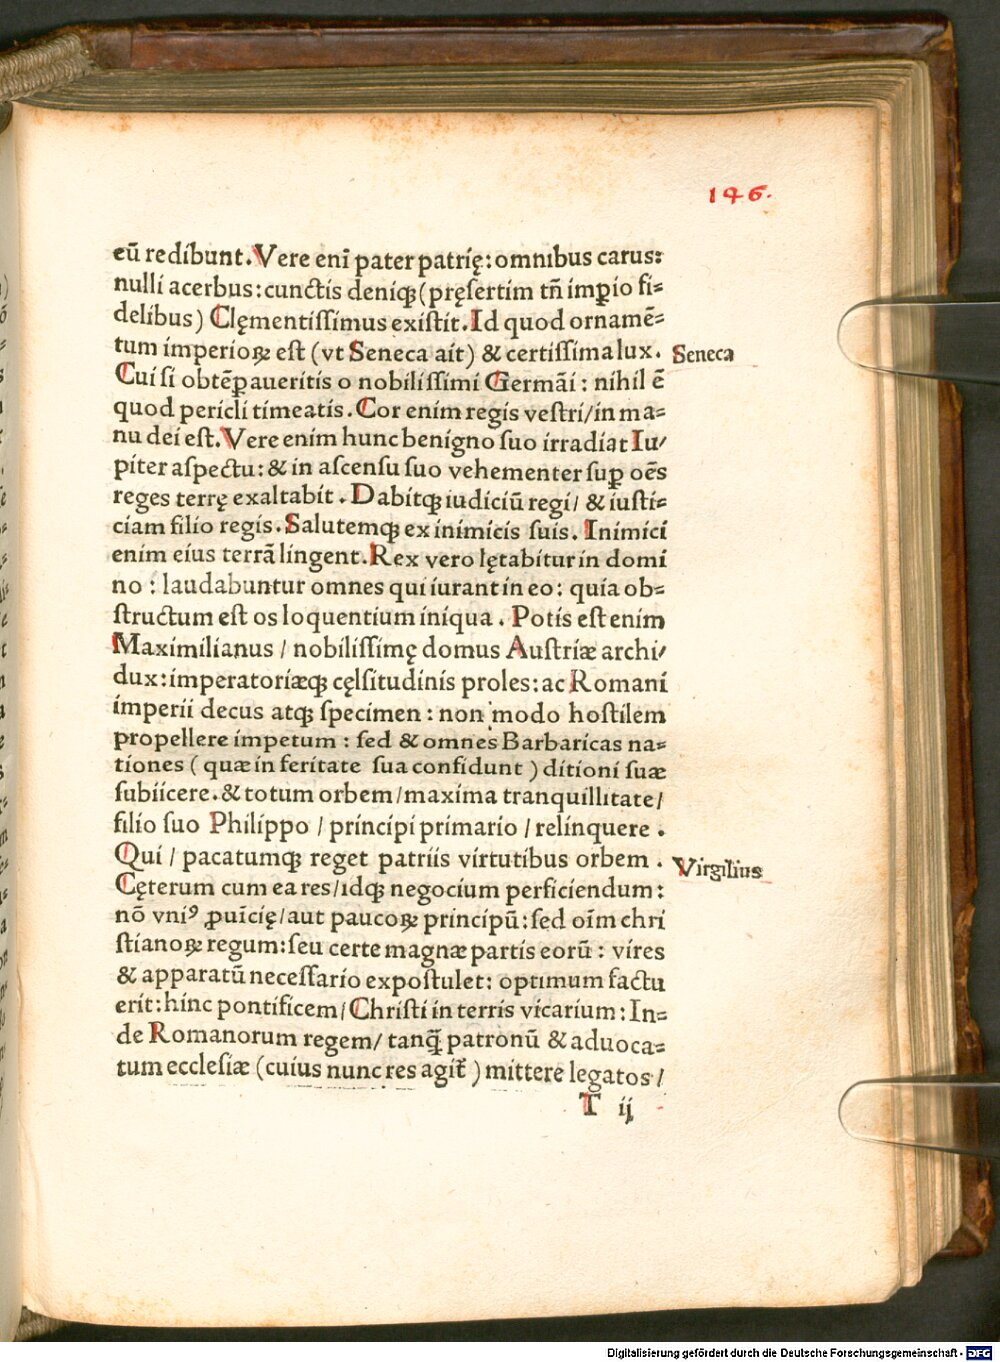 146.
eū redibunt. Vere eni̅ pater patrię: omnibus carus:
nulli acerbus: cunctis deniqꝫ (pręſertim tn̄ imꝑio fi⸗
delibus) Clęmentiſſimus exiſtit. Id quod ornamē⸗
tum imperioꝝ eſt (vt Seneca ait) & certiſſima lux.
Seneca
Cui ſi obtēꝑaueritis o nobiliſſimi Germāi: nihil ē
quod pericli timeatis. Cor enim regis veſtri/ in ma⸗
nu dei eſt. Vere enim hunc benigno ſuo irradiat Iu/
piter aſpectu: & in aſcenſu ſuo vehementer ſuꝑ oēs
reges terrę exaltabit. Dabitqꝫ iudiciū regi/ & iuſti⸗
ciam filio regis. Salutemqꝫ ex inimicis ſuis. Inimici
enim eius terrā lingent. Rex vero lętabitur in domi
no: laudabuntur omnes qui iurant in eo: quia ob⸗
ſtructum eſt os loquentium iniqua. Potis eſt enim
Maximilianus / nobiliſſimę domus Auſtriæ archi/
dux: imperatoriæqꝫ cęlſitudinis proles: ac Romani
imperii decus atqꝫ ſpecimen: non modo hoſtilem
propellere impetum: ſed & omnes Barbaricas na⸗
tiones (quæ in feritate ſua confidunt) ditioni ſuæ
ſubiicere. & totum orbem/ maxima tranquillitate/
filio ſuo Philippo / principi primario / relinquere.
Qui / pacatumqꝫ reget patriis virtutibus orbem.
Virgilius
Cęterum cum ea res/ idqꝫ negocium perficiendum:
nō vniꝰ ꝓuīcię/ aut paucoꝝ principū: ſed oīm chri
ſtianoꝝ regum: ſeu certe magnæ partis eorū: vires
& apparatū neceſſario expoſtulet: optimum factu
erit: hinc pontificem/ Chriſti in terris vicarium: In⸗
de Romanorum regem/ tanq̄ patronū & aduoca⸗
tum eccleſiæ (cuius nunc res agit̄) mittere legatos/
T ij
Digitalisierung gefördert durch die Deutsche Forschungsgemeinschaft - DFG